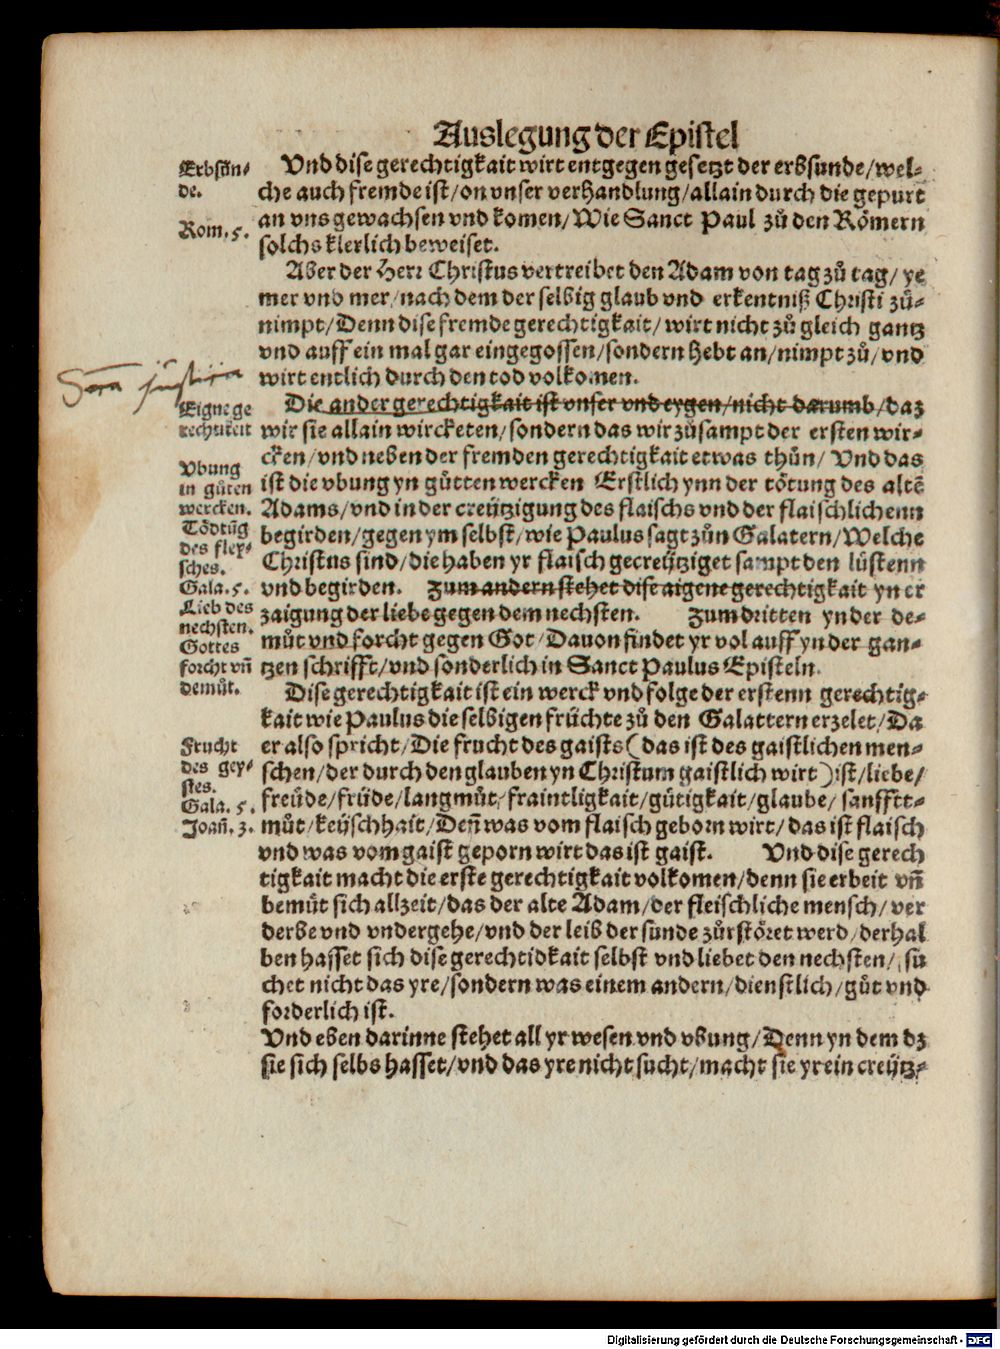 Auslegung der Epistel
Erbsün⸗
de.
Rom. 5.
Vnd dise gerechtigkait wirt entgegen gesetzt der erbsunde/wel⸗
che auch fremde ist/on vnser verhandlung/allain durch die gepurt
an vns gewachsen vnd komen/Wie Sanct Paul zů den Römern
solchs klerlich beweiset.
Aber der Herr Christus vertreibet den Adam von tag zů tag/ ye
mer vnd mer/nach dem der selbig glaub vnd erkentniß Christi zů⸗
nimpt/Denn dise fremde gerechtigkait/ wirt nicht zů gleich gantz
vnd auff ein mal gar eingegossen/sondern hebt an/nimpt zů/vnd
wirt entlich durch den tod volkomen.
justitia
Eigne ge
rechtikeit
Vbung
in gůten
wercken.
Tödtũg
des fley⸗
sches.
Gala. 5.
Lieb des
nechsten.
Gottes
forcht vñ
demůt.
Die ander gerechtigkait ist vnser vnd eygen/nicht darumb/daz
wir sie allain wircketen/sondern das wir zůsampt der ersten wir⸗
cken/vnd neben der fremden gerechtigkait etwas thůn/ Vnd das
ist die vbung yn gůtten wercken Erstlich ynn der tötung des altẽ
Adams/vnd in der creützigung des flaischs vnd der flaischlichenn
begirden/gegen ym selbst/wie Paulus sagt zůn Galatern/Welche
Christus sind/die haben yr flaisch gecreütziget sampt den lüstenn
vnd begirden. Zum andern stehet dise aigene gerechtigkait yn er
zaigung der liebe gegen dem nechsten. Zum dritten yn der de⸗
můt vnd forcht gegen Got/Dauon findet yr vol auff yn der gan⸗
tzen schrifft/vnd sonderlich in Sanct Paulus Episteln.
Frucht
des gey⸗
stes.
Gala. 5.
Joañ. 3.
Dise gerechtigkait ist ein werck vnd folge der erstenn gerechtig⸗
kait wie Paulus die selbigen früchte zů den Galattern erzelet/Da
er also spricht/Die frucht des gaists(das ist des gaistlichen men⸗
schen/der durch den glauben yn Christum gaistlich wirt)ist/liebe/
freüde/früde/langmůt/fraintligkait/gütigkait/glaube/ sanfft⸗
můt/keüschhait/Deñ was vom flaisch geborn wirt/das ist flaisch
vnd was vom gaist geporn wirt das ist gaist. Vnd dise gerech
tigkait macht die erste gerechtigkait volkomen/denn sie erbeit vñ
bemüt sich allzeit/das der alte Adam/der fleischliche mensch/ ver
derbe vnd vndergehe/vnd der leib der sunde zůrstöret werd/derhal
ben hasset sich dise gerechtidkait selbst vnd liebet den nechsten/ sů
chet nicht das yre/sondern was einem andern/dienstlich/gůt vnd
forderlich ist.
Vnd eben darinne stehet all yr wesen vnd vbung/Denn yn dem dz
sie sich selbs hasset/vnd das yre nicht sucht/macht sie yr ein creütz⸗
Digitalisierung gefördert durch die Deutsche Forschungsgemeinschaft - DFG